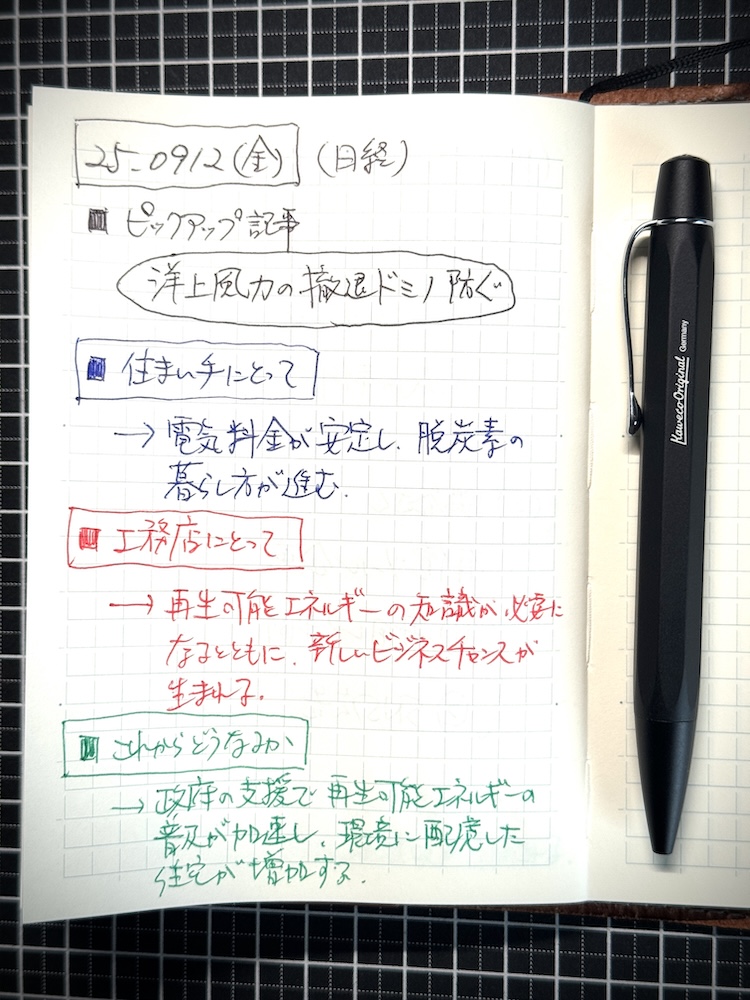 25-0912(金) (日経)
■ ピックアップ記事
洋上風力の撤退ドミノ防ぐ
■ 住まい手にとって
→ 電気料金が安定し、脱炭素の
暮らし方が進む。
■ 工務店にとって
→ 再生可能エネルギーの知識が必要に
なるとともに、新しいビジネスチャンスが
生まれる。
■ これからどうなるか
→ 政府の支援で再生可能エネルギーの
普及が加速し、環境に配慮した
住宅が増加する。
Kaweco Original Germany